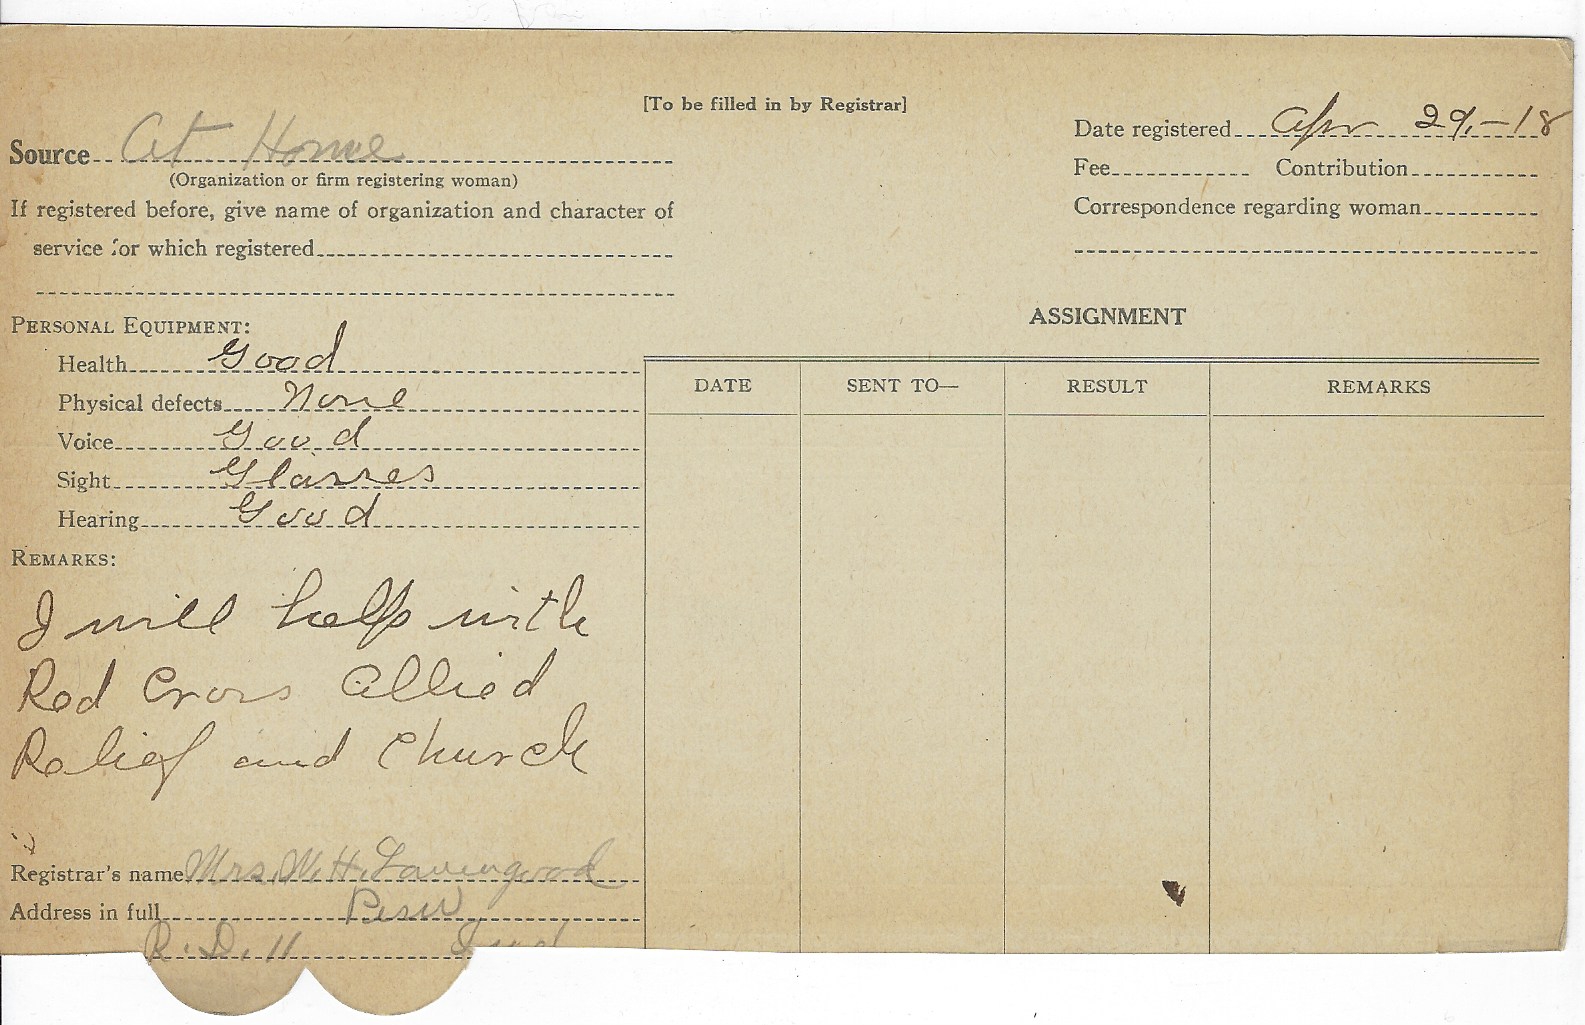 [To be filled in by Registrar]
Source At Home
(Organization or firm registering woman)
If registered before, give name of organization and character of
service for which registered
Date registered Apr 29,-18
Fee Contribution
Correspondence regarding woman
PERSONAL EQUIPMENT:
Health Good
Physical defects None
Voice Good
Sight Glasses
Hearing Good
REMARKS:
I will help with
Red Cross Allied
Relief and Church
Registrar's name Mrs. M. H. Lavengood
Address in full Peru
R. D. 11 Ind
ASSIGNMENT
DATE SENT TO— RESULT REMARKS